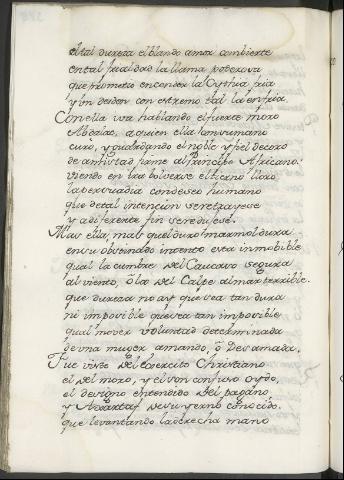 en tal dureza el blando amor conbierte
en tal frialdad la llama poderosa
que prometio encender la Cythia fria
y sin desden con estremo tal la enfria.
Con ella va hablando el fuerte moro
Abdalac, a quien ella con humani
curo, y guardando el noble y fiel decoro
de amistad firme al principe Africano.
viendo en ira bolverse el tierno lloro
la persuadia con deseo humano
que de tal intencion se retraxese
y a diferente fin se reduxese.
Mas ella, mas que el duro marmol dura
en su obstinado intento esta inmobible
qual la cumbre del Caucaso segura
al viento, ò la del Calpe al mar terrible.
que dureza no ay que sea tan dura
ni imposible que sea tan imposible
qual mover voluntad determinada
de una muger amando, ò Desamada.
Fue visto del exercito Christiano
el del moro, y el son confuso oydo,
el designo entendido del pagano
y de su yerno conocido.
que levantando la derecha mano